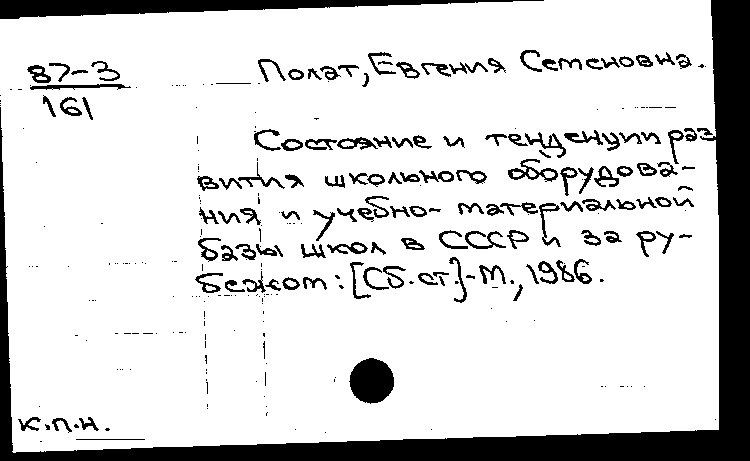 87-3
161
Полат, Евгения Семеновна.
Состояние и тенденции раз
вития школьного оборудова-
ния и учебно-материальной
базы школ в СССР и за ру-
бежом: [Сб. ст.]-М., 1986.
к.п.н.